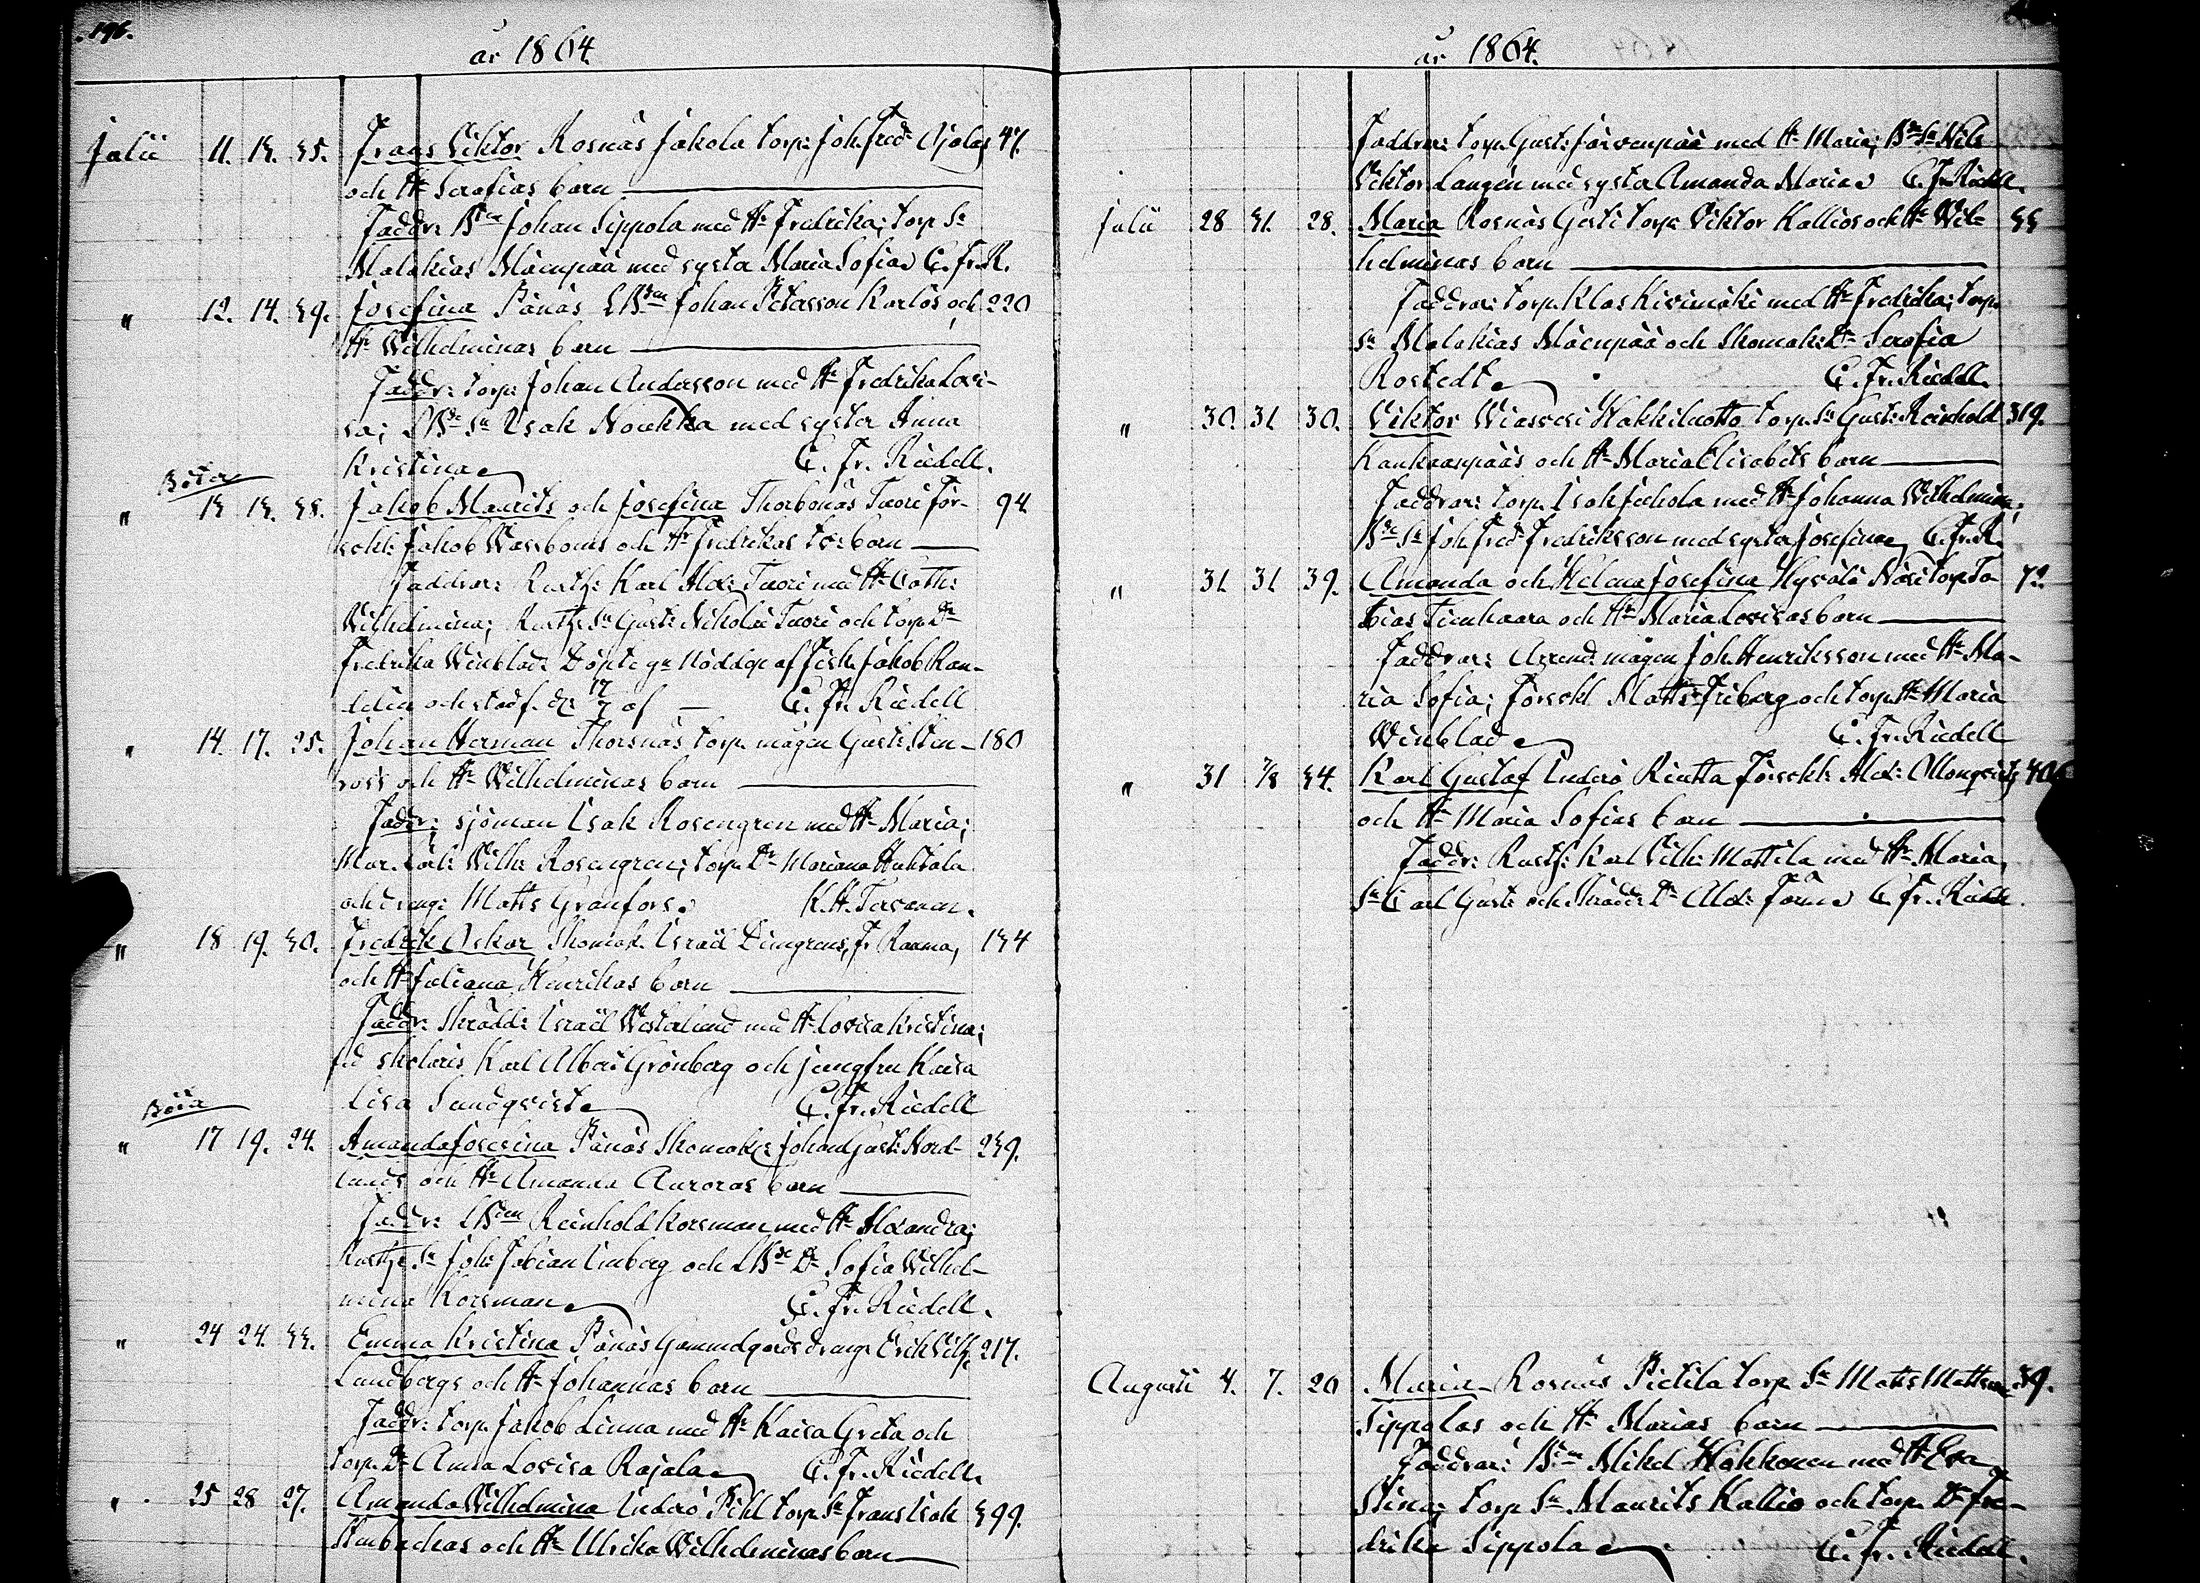 196.
år 1864.
Julii 11. 13. 35. Frans Viktor Rosnäs Jakola torp: Joh. Fred: Ojolas 47.
och H: Serafias barn
Faddr: B:en Johan Sippola med H: Fredrika; torp S:
Malakias Mäenpää med syster Maria Sofia C. Fr. R.
" 12. 14. 39. Josefina Pänäs LB:en Johan Petersson Karlös och 220
H: Wilhelminas barn
Faddr: torp: Johan Andersson med H: Fredrika Lovi-
sa; LB: S: Isak Noukka med syster Anna
Kristina C. Fr. Riedell.
Böter
" 13 13. 38. Jakob Maurits och Josefina Thorbonäs Tuori För-
sokl: Jakob Wassboms och H: Fredrikas tv: barn 94
Faddrar: Rusth: Karl Alex: Tuori med H: Cath:
Wilhelmina; Rusth: S: Gust: Nikolai Tuori och torp D:
Fredrika Winblad: Döpte gn Nöddop af Fisk: Jakob Ran-
delin och stadf. d: 17/7 af C. Fr. Riedell
" 14. 17. 25. Johan Herman Thorsnäs torp. mågen Gust: Sten- 180
ross och H: Wilhelminas barn
Faddr: sjöman Isak Rosengren med H: Maria;
Mar. Wilh: Rosengren; torp. D: Mariana Huhtala
och dreng: Matts Granfors. K. H. Tersonen.
" 18 19. 30. Fredrik Oskar Skomak. Israël Dimgrens, Fr Raumo, 134
och H: Juliana Henrikas barn
Faddr: Skrädd: Israël Westerlund med H: Lovisa Kristina;
fd skolaris Karl Albert Grönberg och jungfru Kaisa
Lisa Sundqvist C. Fr. Riedell
Böter
" 17 19. 24. Amanda Josefina Pänäs Skomak: Johan Gust: Nord- 239.
lunds och H: Amanda Auroras barn
Faddr: LB:en Reinhold Korsman med H: Alexandra;
Rusth: S: Joh: Fabian Linberg och LB: D: Sofia Wilhel-
mina Korsman C. Fr. Riedell.
" 24 24. 33. Emma Kristina Pänäs Gammelgårds dreng: Erik Vilh: 217.
Lundbergs och H: Johannas barn
Faddr: torp. Jakob Linna med H: Kaisa Greta och
torp. D: Anna Lovisa Rajala C. Fr. Riedell.
" 25 28 27. Amanda Wilhelmina Inderö Pihl torp. S: Frans Isak 399.
och H: Ulrika Wilhelminas barn
år 1864.
Faddrar: torp. Gust: Järvenpää med H: Maria; B: S: Nils
Viktor Langén med syster Amanda Maria C. Fr. Riedell.
Julii 28 31. 28. Maria Rosnäs Gesti torp. Viktor Kallios och H: Wil- 55
helminas barn
Faddrar: torp. Klas Kivimäki med H: Fredrika; torp.
S: Malakias Mäenpää och Skomak: D: Serafia
Rostedt C. Fr. Riedell.
" 30. 31 30. Viktor Wiasvesi Hakkiluotto torp. S: Gust: Reinhold 319.
Kankaanpääs och H: Maria Elisabets barn
Faddrar: torp. Isak Jukola med H: Johanna Wilhelmina;
B: S: Joh Fred: Fredriksson med syster Josefina C. Fr. R.
" 31. 31 39. Amanda och Helena Josefina Hyvälä Näsi torp To- 72.
bias Tienhaara och H: Maria Lovisas barn
Faddrar: Arrend. mågen Joh. Henriksson med H: Ma-
ria Sofia; Försokl Matts Friberg och torp. H: Maria
Winblad C. Fr. Riedell
" 31 7/8 34. Karl Gustaf Inderö Rintta Försokl: Alex: Ollonqvists
och H: Maria Sofias barn
Faddr: Rusth: Karl Vilh: Mattila med H: Maria,
S: Carl Gust: och Skrädd: D: Alex: C. Fr. Riedell.
Augusti 4. 7. 20 Maria Rosnäs Pietila torp S: Matts Mattsson 39.
Sippolas och H: Marias barn
Faddrar: B:en Mikel Hakkonen med H: Eva
Stina; torp S: Maurits Kallio och torp. D: Fre-
drika Sippola C. Fr. Riedell.